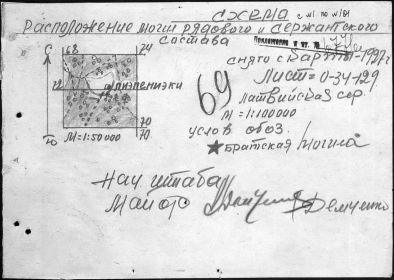 схема с №1 по №161
Расположение могил рядового и сержантского
состава
снято с карты-1927г
Лист=0-34-129
Латвийская сср.
М=1:100000
услов обоз.
★ Братская могила
68 74
С
72
Ю
70
70
М=1:50000
69
Нач. штаба
Майор Демченко